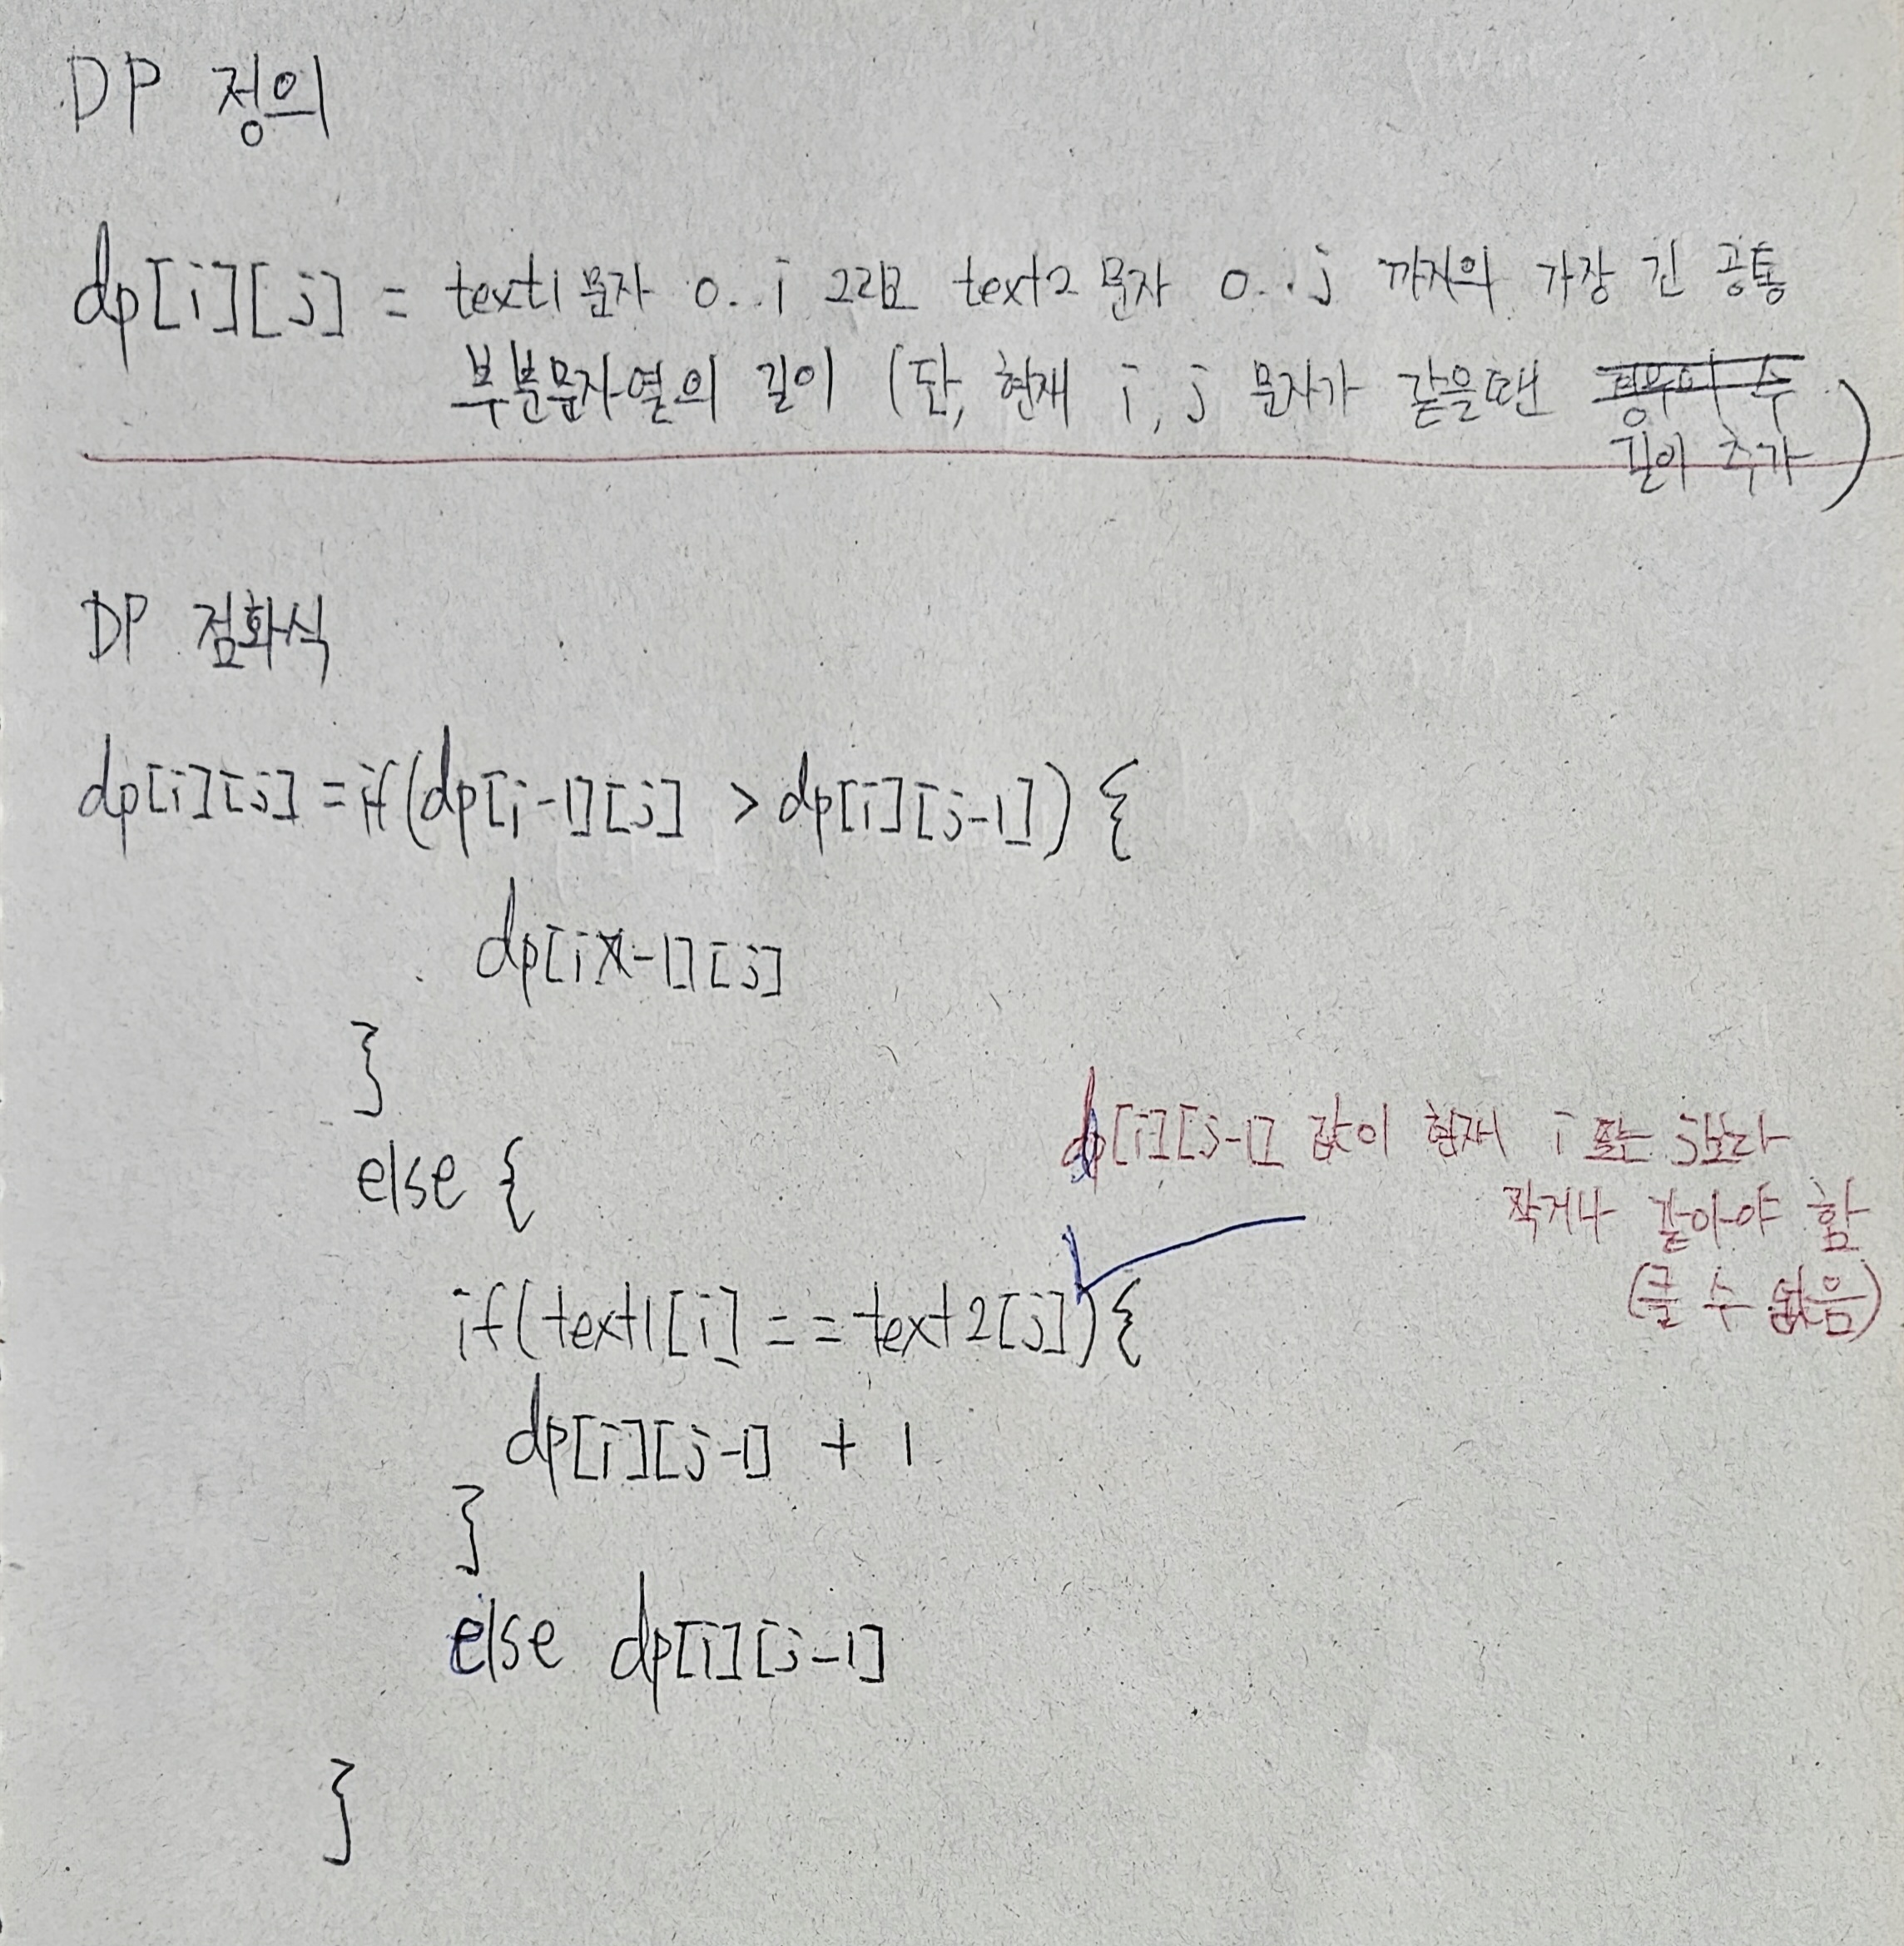 DP 정의
dp[i][j] = text1 문자 0..i 그리고 text2 문자 0..j 까지의 가장 긴 공통
부분문자열의 길이 (단, 현재 i, j 문자가 같을땐
길이 추가)
DP 점화식
dp[i][j] = if(dp[i-1][j] > dp[i][j-1]) {
dp[i-1][j]
}
else {
dp[i][j-1] 값이 현재 i 또는 j보다
작거나 같아야 함
(클 수 없음)
if(text1[i] == text2[j]){
dp[i][j-1] + 1
}
else dp[i][j-1]
}